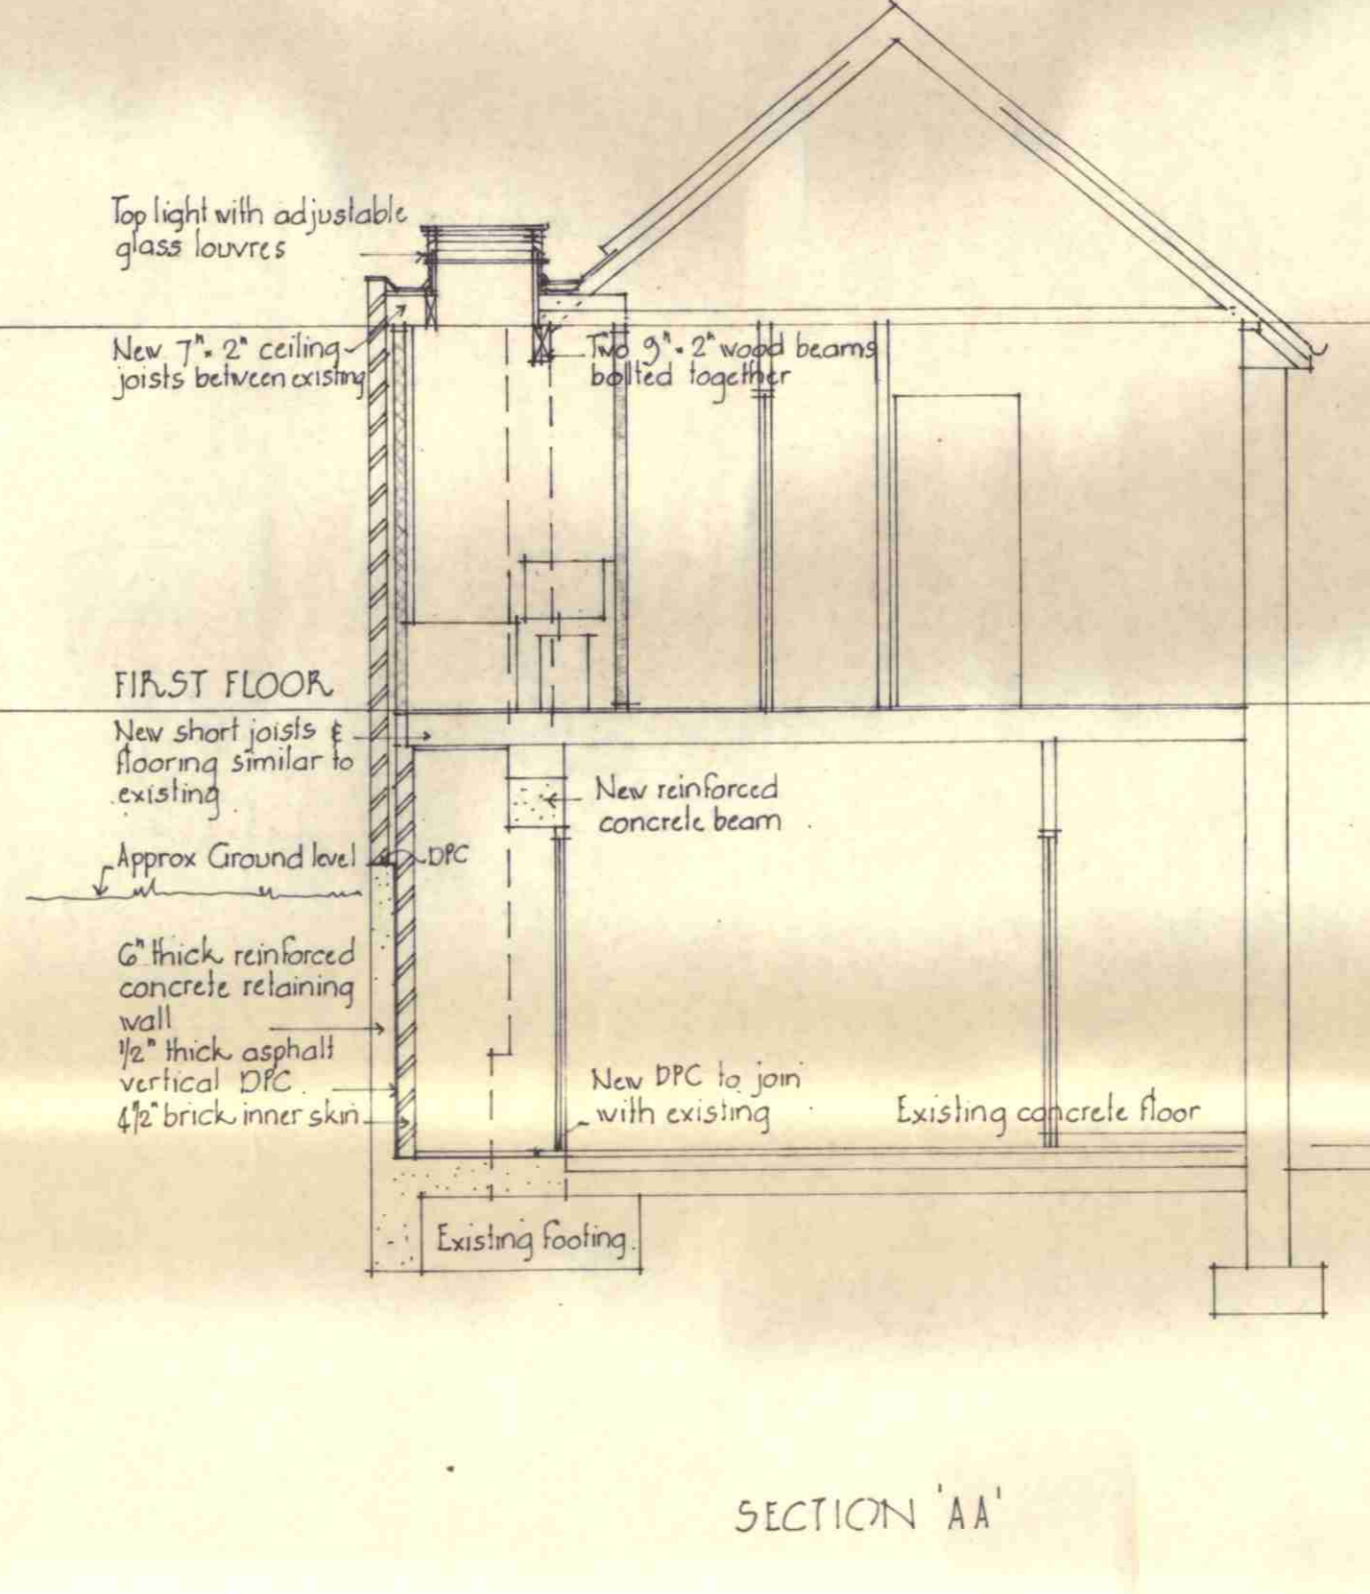 Top light with adjustable
glass louvres
New 7"×2" ceiling
joists between existing
Two 9"×2" wood beams
bolted together
FIRST FLOOR
New short joists &
flooring similar to
existing
New reinforced
concrete beam
Approx Ground level
DPC
6" thick reinforced
concrete retaining
wall
1/2" thick asphalt
vertical DPC
4 1/2" brick inner skin
New DPC to join
with existing
Existing concrete floor
Existing footing.
SECTION 'AA'